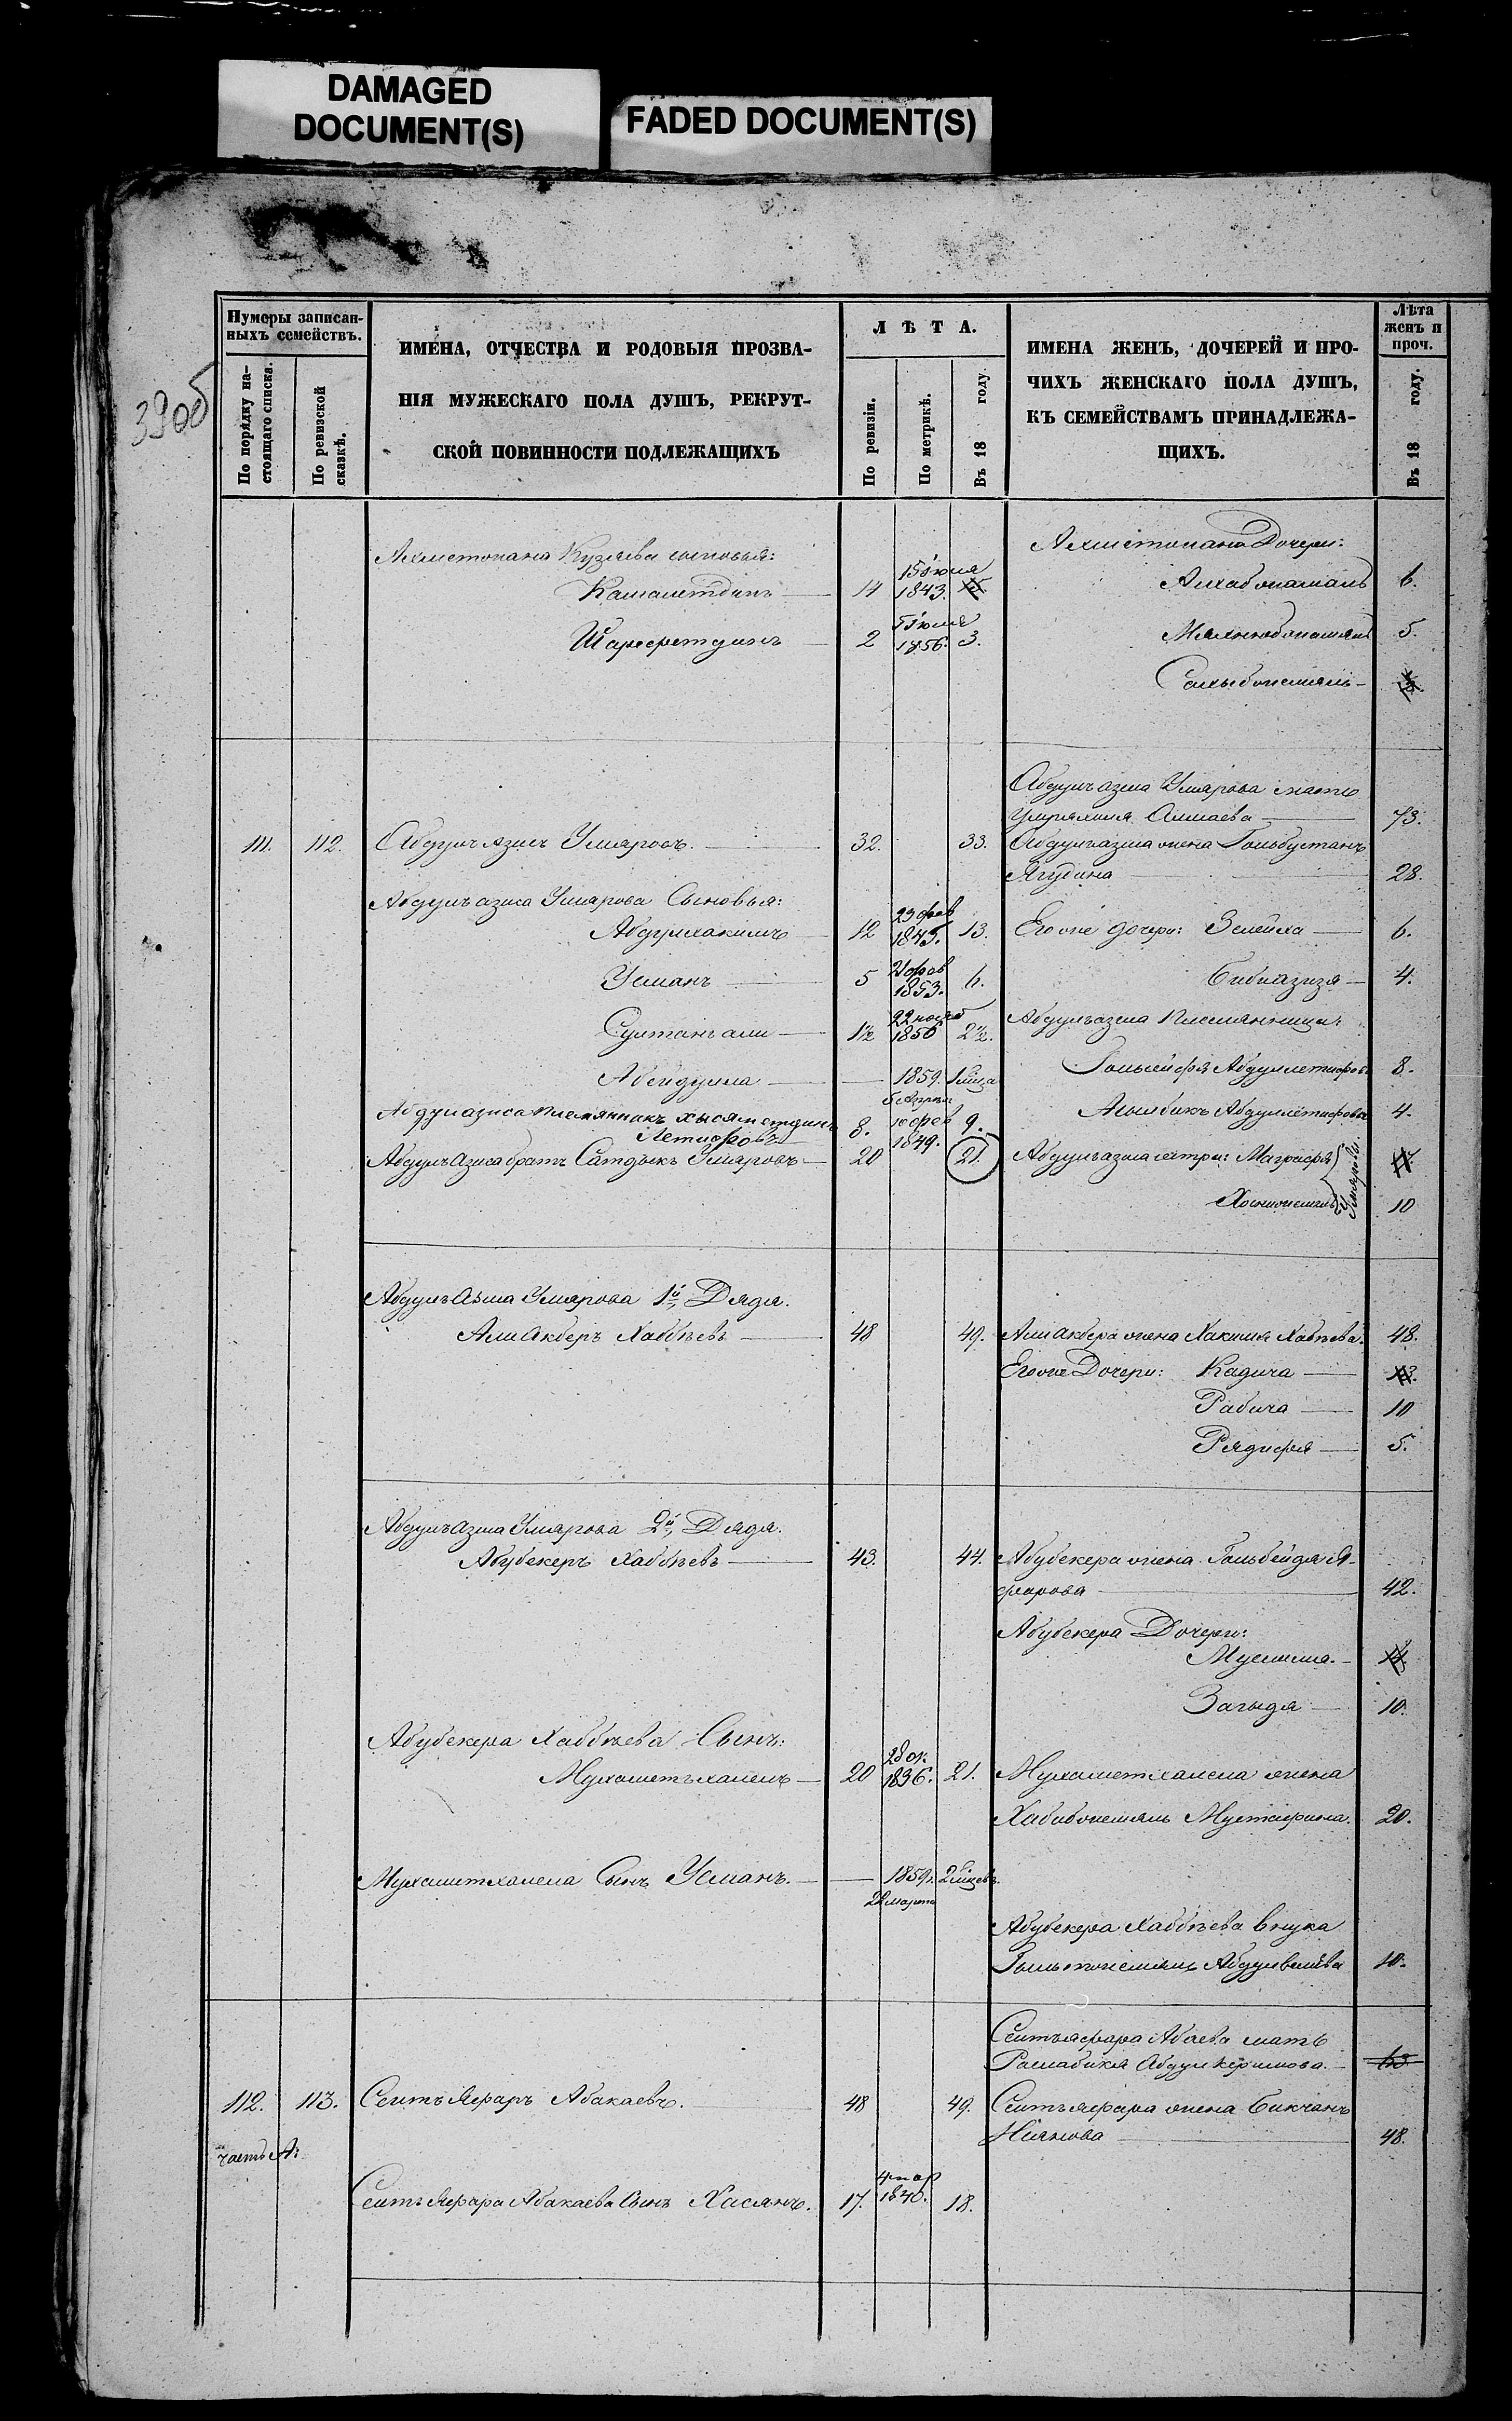 DAMAGED
DOCUMENT(S)
FADED DOCUMENT(S)
39об
Нумеры записан-
ныхъ семействъ.
По порядку на-
стоящаго списка.
По ревизской
сказкѣ.
ИМЕНА, ОТЧЕСТВА И РОДОВЫЯ ПРОЗВА-
НІЯ МУЖЕСКАГО ПОЛА ДУШЪ, РЕКРУТ-
СКОЙ ПОВИННОСТИ ПОДЛЕЖАЩИХЪ
ЛѢТА.
По ревизіи.
По метрикѣ.
Въ 18 году.
ИМЕНА ЖЕНЪ, ДОЧЕРЕЙ И ПРО-
ЧИХЪ ЖЕНСКАГО ПОЛА ДУШЪ,
КЪ СЕМЕЙСТВАМЪ ПРИНАДЛЕЖА-
ЩИХЪ.
Лѣта
женъ и
проч.
Въ 18 году.
Ахметжана Кузяева сыновья:
Камалетдинъ 14 15 іюля 1843.
Шарафетдинъ 2 1856. 3.
Ахметжана Дочери:
6.
5.
Абдулъ азиса Умярова мать
Алмаева 73.
111. 112. Абдулъ Азисъ Умяровъ. 32. 33. Абдулъазиса жена Гюльбустанъ
Ягудина 28.
Абдулъ азиса Умярова Сыновья:
Абдулхакимъ 12 23 фев 1845. 13. Его же дочери: Зелейха 6.
Усманъ 5 21 фев 1853. 6. Бибиазизя 4.
Султанъ али 1½ 22 нояб 1856 2½. Абдулъазиса Племянницы:
Абейдулла 1859. 5 Апреля
Абдуллетифова 8.
Абдулазиса племянникъ Хысяметдинъ
Летифовъ 8. 10 фев 1849. 9.
Абдуллетифова 4.
Абдулъ Азиса братъ Сатдыкъ Умяровъ 20 21. Абдулъазиса сестры: Магрифя
Умяровы
10
Абдулъ Азиса Умярова 1й Дядя.
Али Акберъ Хабѣевъ 48 49. Али акбера жена Хакимя Хабѣева. 48.
Его же Дочери: Кадича
Рабига 10
Рядифя 5.
Абдулъ Азиса Умярова 2й Дядя.
Абубекеръ Хабѣевъ 43. 44. Абубекера жена Гюльбейдя Я-
фарова 42.
Абубекера Дочери:
Муслима.
Загыдя 10.
Абубекера Хабѣева Сынъ:
Мухаметъ халемъ 20 1836. 21. Мухаметхалема жена
Мустафина. 20.
Мухаметхалема Сынъ Усманъ. 1859г. 22 марта
Абубекера Хабѣева внука
Абдулвелѣева 10.
Сеитъяфара Абаева мать
Абдулкеримова. 63
112. 113. Сеитъ Яфаръ Абакаевъ. 48 49. Сеитъяфара жена Бикчанъ
Ніязова 48.
часть А:
Сеитъ Яфара Абакаева Сынъ Хасянъ. 17. 4 мар 1840. 18.